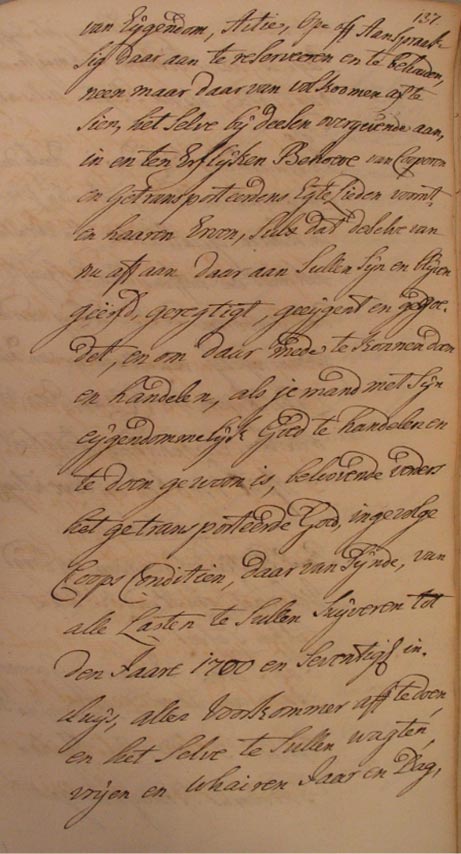 137.
van Eijgendom, Actie, Ope off Aanspraak
sig daar aan te reserveren en te behouden,
neen maar daar van volkoomen aff te
sien, het selve bij deesen overgevende aan,
in en ten Erflijken Behoeve van Coperen
en Getransporteerdens Egte Lieden voornt.
en haaren Erven, sulx dat deselve van
nu aff aan daar aan sullen sijn en blijven
geërfd, geregtigt, geeijgent en gegoe-
det, en om daar mede te konnen doen
en handelen, als jemand met sijn
eijgendommelijk Goed te handelen en
te doen gewoon is, beloovende voorders
het getransporteerde Goed, ingevolge
Coops Conditien, daar van sijnde, van
alle Lasten te sullen suijveren tot
den Jaare 1700 en seventigh in-
cluijs, alle voorkommer aff te doen
en het selve te sullen wagten,
vrijen en whairen Jaar en Dag,